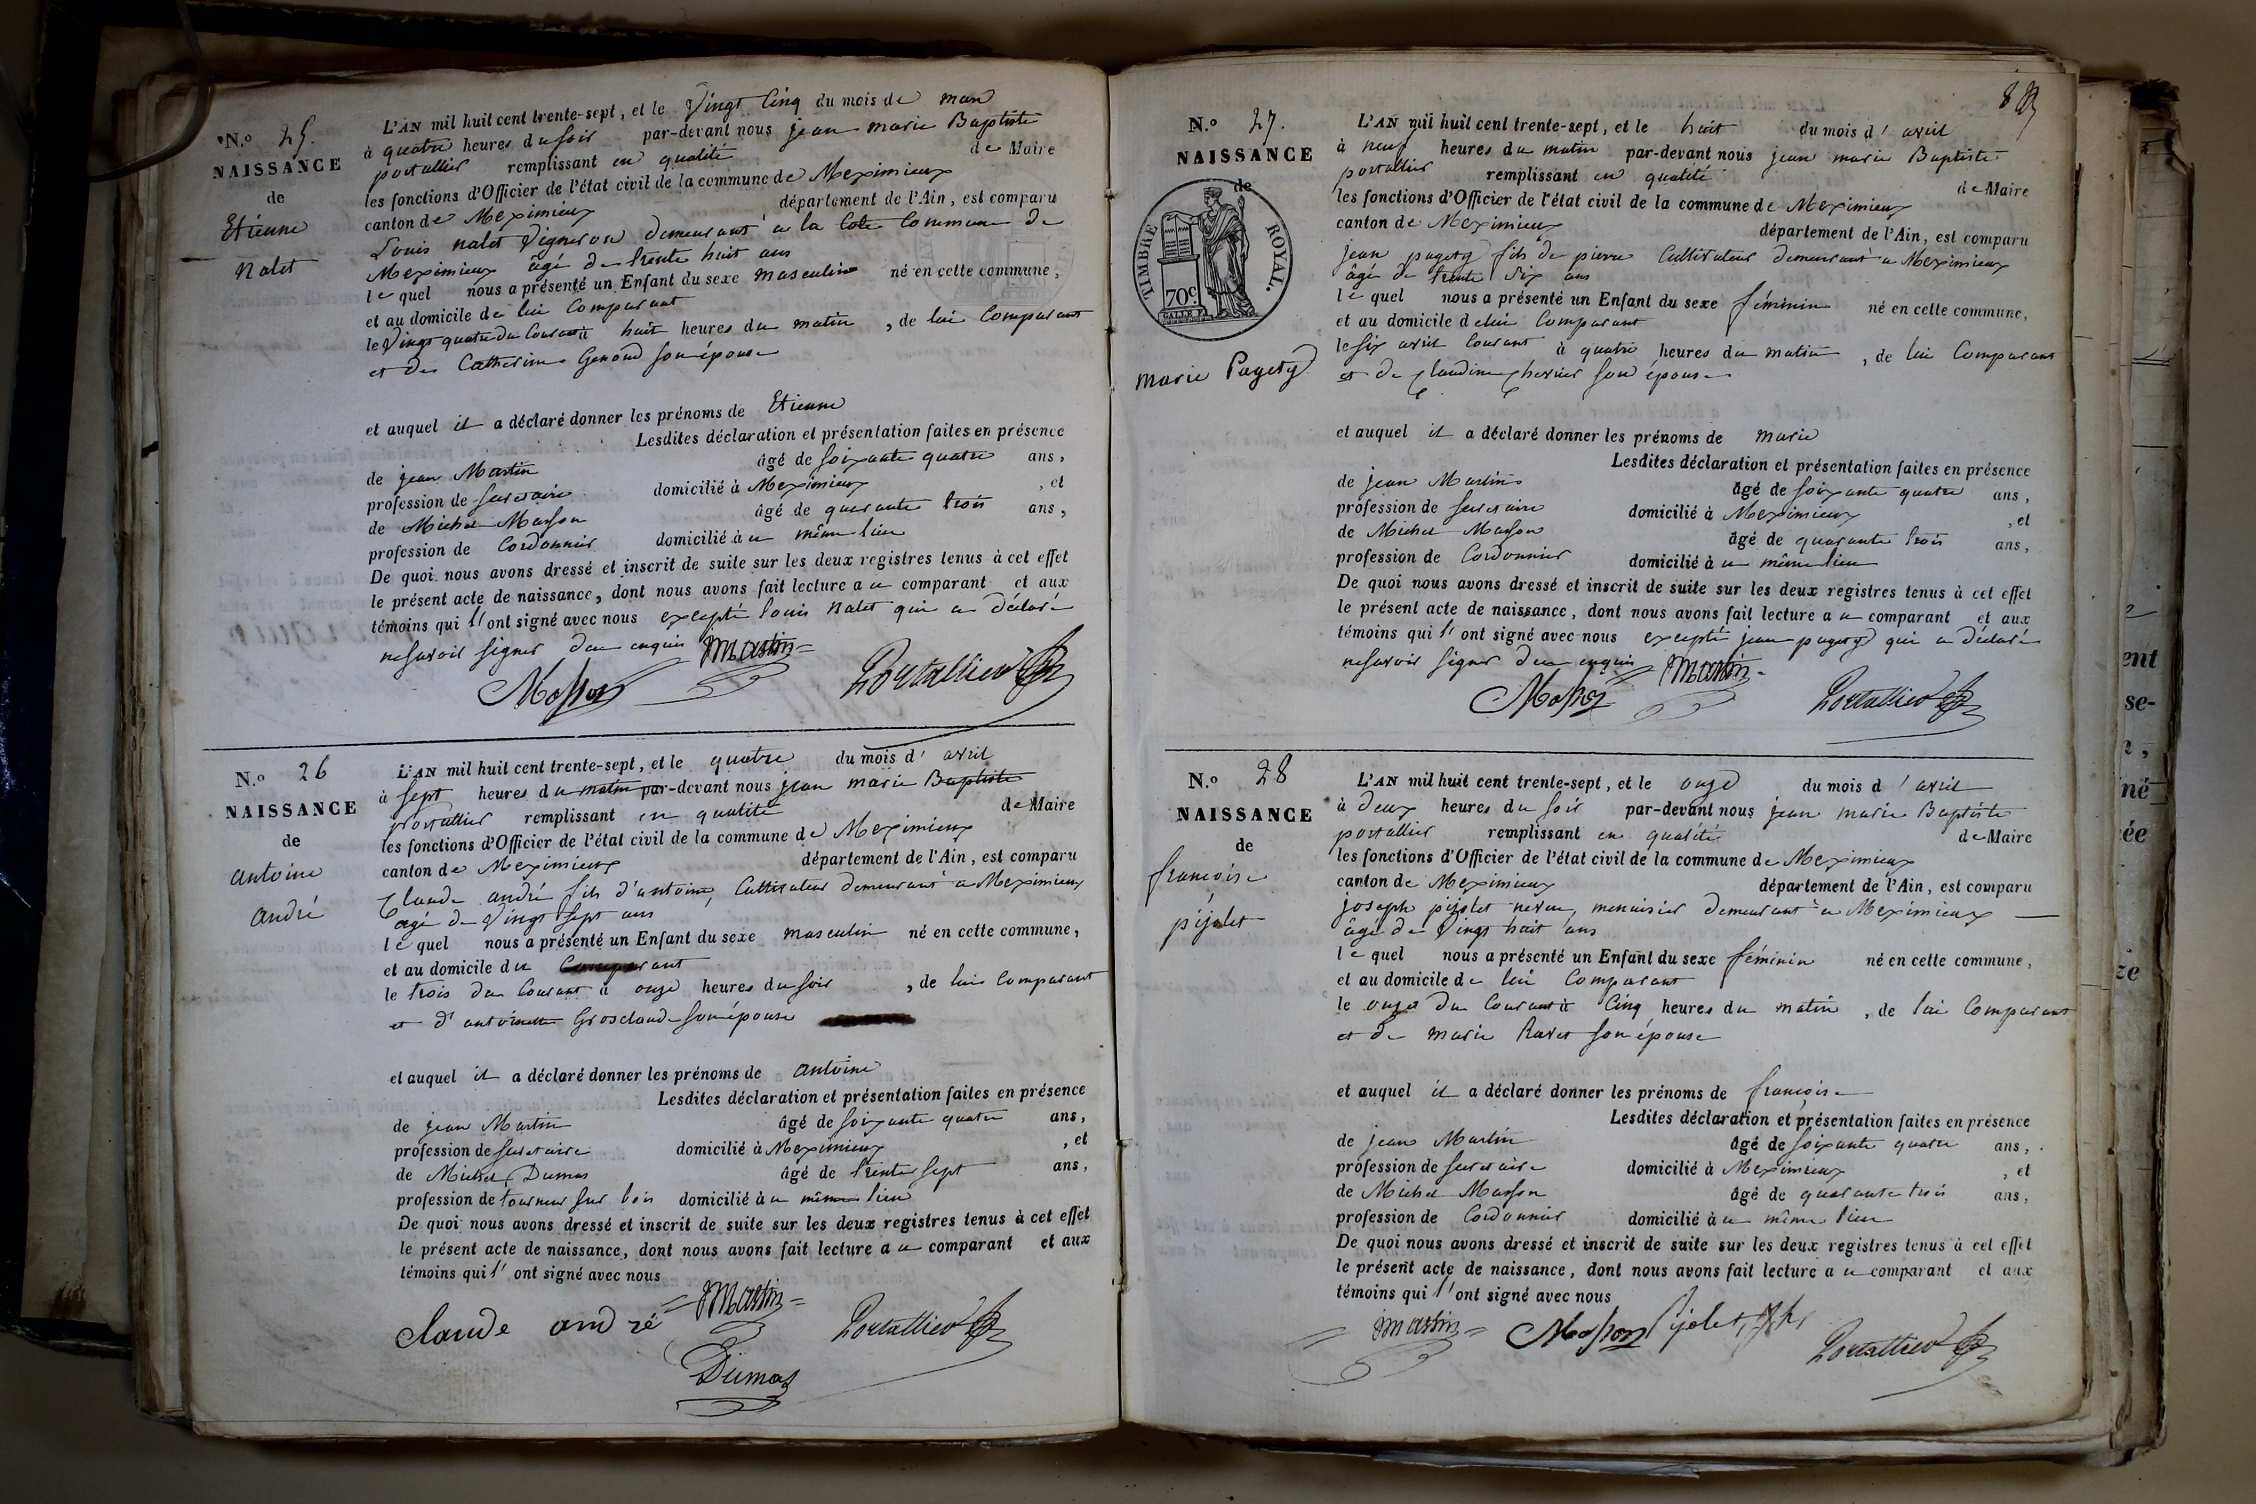 N.o 25.
NAISSANCE
de
Etienne
Nalet
L'AN mil huit cent trente-sept, et le Vingt Cinq du mois de mars
à quatre heures du soir par-devant nous jean marie Baptiste
portallier remplissant en qualité de Maire
les fonctions d'Officier de l'état civil de la commune de Meximieux
canton de Meximieux département de l'Ain, est comparu
Louis nalet Vigneron demeurant à la Cote Commune de
Meximieux âgé de trente huit ans
lequel nous a présenté un Enfant du sexe masculin né en cette commune,
et au domicile de lui Comparant
le Vingt quatre du Courant à huit heures du matin, de lui Comparant
et de Catherine Genoud son épouse
et auquel il a déclaré donner les prénoms de Etienne
Lesdites déclaration et présentation faites en présence
de jean Martin âgé de soixante quatre ans,
profession de secretaire domicilié à Meximieux, et
de Michel Masson âgé de quarante trois ans,
profession de Cordonnier domicilié au même lieu
De quoi nous avons dressé et inscrit de suite sur les deux registres tenus à cet effet
le présent acte de naissance, dont nous avons fait lecture au comparant et aux
témoins qui l'ont signé avec nous excepté Louis Nalet qui a déclaré
ne savoir signer de ce enquis Martin
Masson Portallier
N.o 26
NAISSANCE
de
antoine
andré
L'AN mil huit cent trente-sept, et le quatre du mois d'avril
à sept heures du matin par-devant nous jean marie Baptiste
portallier remplissant en qualité de Maire
les fonctions d'Officier de l'état civil de la commune de Meximieux
canton de Meximieux département de l'Ain, est comparu
Claude andré fils d'antoine, Cultivateur demeurant a Meximieux
agé de Vingt sept ans
lequel nous a présenté un Enfant du sexe masculin né en cette commune,
et au domicile du Comparant
le trois du Courant à onze heures du soir, de lui Comparant
et d'antoinette Grosclaude son épouse
et auquel il a déclaré donner les prénoms de antoine
Lesdites déclaration et présentation faites en présence
de jean Martin âgé de soixante quatre ans,
profession de secretaire domicilié à Meximieux, et
de Michel Dumas âgé de trente sept ans,
profession de tourneur sur bois domicilié au même lieu
De quoi nous avons dressé et inscrit de suite sur les deux registres tenus à cet effet
le présent acte de naissance, dont nous avons fait lecture au comparant et aux
témoins qui l'ont signé avec nous
Martin
claude andré Portallier
Dumas
N.o 27.
NAISSANCE
de
TIMBRE ROYAL.
70c
marie Pagety
L'AN mil huit cent trente-sept, et le huit du mois d'avril
à neuf heures du matin par-devant nous jean marie Baptiste
portallier remplissant en qualité de Maire
les fonctions d'Officier de l'état civil de la commune de Meximieux
canton de Meximieux département de l'Ain, est comparu
jean pagety fils de pierre Cultivateur demeurant a Meximieux
âgé de trente six ans
lequel nous a présenté un Enfant du sexe féminin né en cette commune,
et au domicile de lui Comparant
le six avril Courant à quatre heures du matin, de lui Comparant
et de Claudine Chevrier son épouse
et auquel il a déclaré donner les prénoms de marie
Lesdites déclaration et présentation faites en présence
de jean Martin âgé de soixante quatre ans,
profession de secretaire domicilié à Meximieux, et
de Michel Masson âgé de quarante trois ans,
profession de Cordonnier domicilié au même lieu
De quoi nous avons dressé et inscrit de suite sur les deux registres tenus à cet effet
le présent acte de naissance, dont nous avons fait lecture au comparant et aux
témoins qui l'ont signé avec nous excepté jean pagety qui a déclaré
ne savoir signer de ce enquis Martin
Masson Portallier
N.o 28
NAISSANCE
de
françoise
pijolet
L'AN mil huit cent trente-sept, et le onze du mois d'avril
à deux heures du soir par-devant nous jean marie Baptiste
portallier remplissant en qualité de Maire
les fonctions d'Officier de l'état civil de la commune de Meximieux
canton de Meximieux département de l'Ain, est comparu
joseph pijolet neveu, menuisier demeurant a Meximieux
âgé de Vingt huit ans
lequel nous a présenté un Enfant du sexe féminin né en cette commune,
et au domicile de lui Comparant
le onze du Courant à Cinq heures du matin, de lui Comparant
et de marie Ravet son épouse
et auquel il a déclaré donner les prénoms de françoise
Lesdites déclaration et présentation faites en présence
de jean Martin âgé de soixante quatre ans,
profession de secretaire domicilié à Meximieux, et
de Michel Masson âgé de quarante trois ans,
profession de Cordonnier domicilié au même lieu
De quoi nous avons dressé et inscrit de suite sur les deux registres tenus à cet effet
le présent acte de naissance, dont nous avons fait lecture au comparant et aux
témoins qui l'ont signé avec nous
Martin Masson Pijolet
Portallier